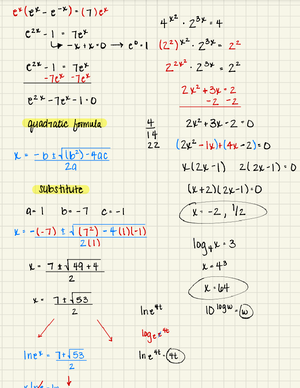 eˣ(eˣ - e⁻ˣ) = (7)eˣ
e²ˣ - 1 = 7eˣ
-x + x = 0 → e⁰ = 1
e²ˣ - 1 = 7eˣ
-7eˣ -7eˣ
e²ˣ - 7eˣ - 1 = 0
quadratic formula
x = -b ± √(b²) - 4ac / 2a
substitute
a = 1 b = -7 c = -1
x = -(-7) ± √(7²) - 4(1)(-1) / 2(1)
x = 7 ± √49 + 4 / 2
x = 7 ± √53 / 2
ln eˣ = 7 + √53 / 2
4^x² · 2³ˣ = 4
(2²)^x² · 2³ˣ = 2²
2^2x² · 2³ˣ = 2²
2x² + 3x = 2
-2 -2
4/14
22
2x² + 3x - 2 = 0
(2x² - 1x) + (4x - 2) = 0
x(2x - 1) 2(2x - 1) = 0
(x + 2)(2x - 1) = 0
x = -2, 1/2
log₄ x = 3
x = 4³
x = 64
ln e⁴ᵗ
10^log w = w
logₑ e⁴ᵗ
ln e⁴ᵗ = 4t